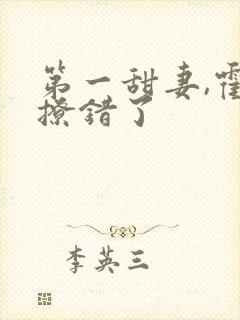 第一甜妻,霍
撩错了
李英三